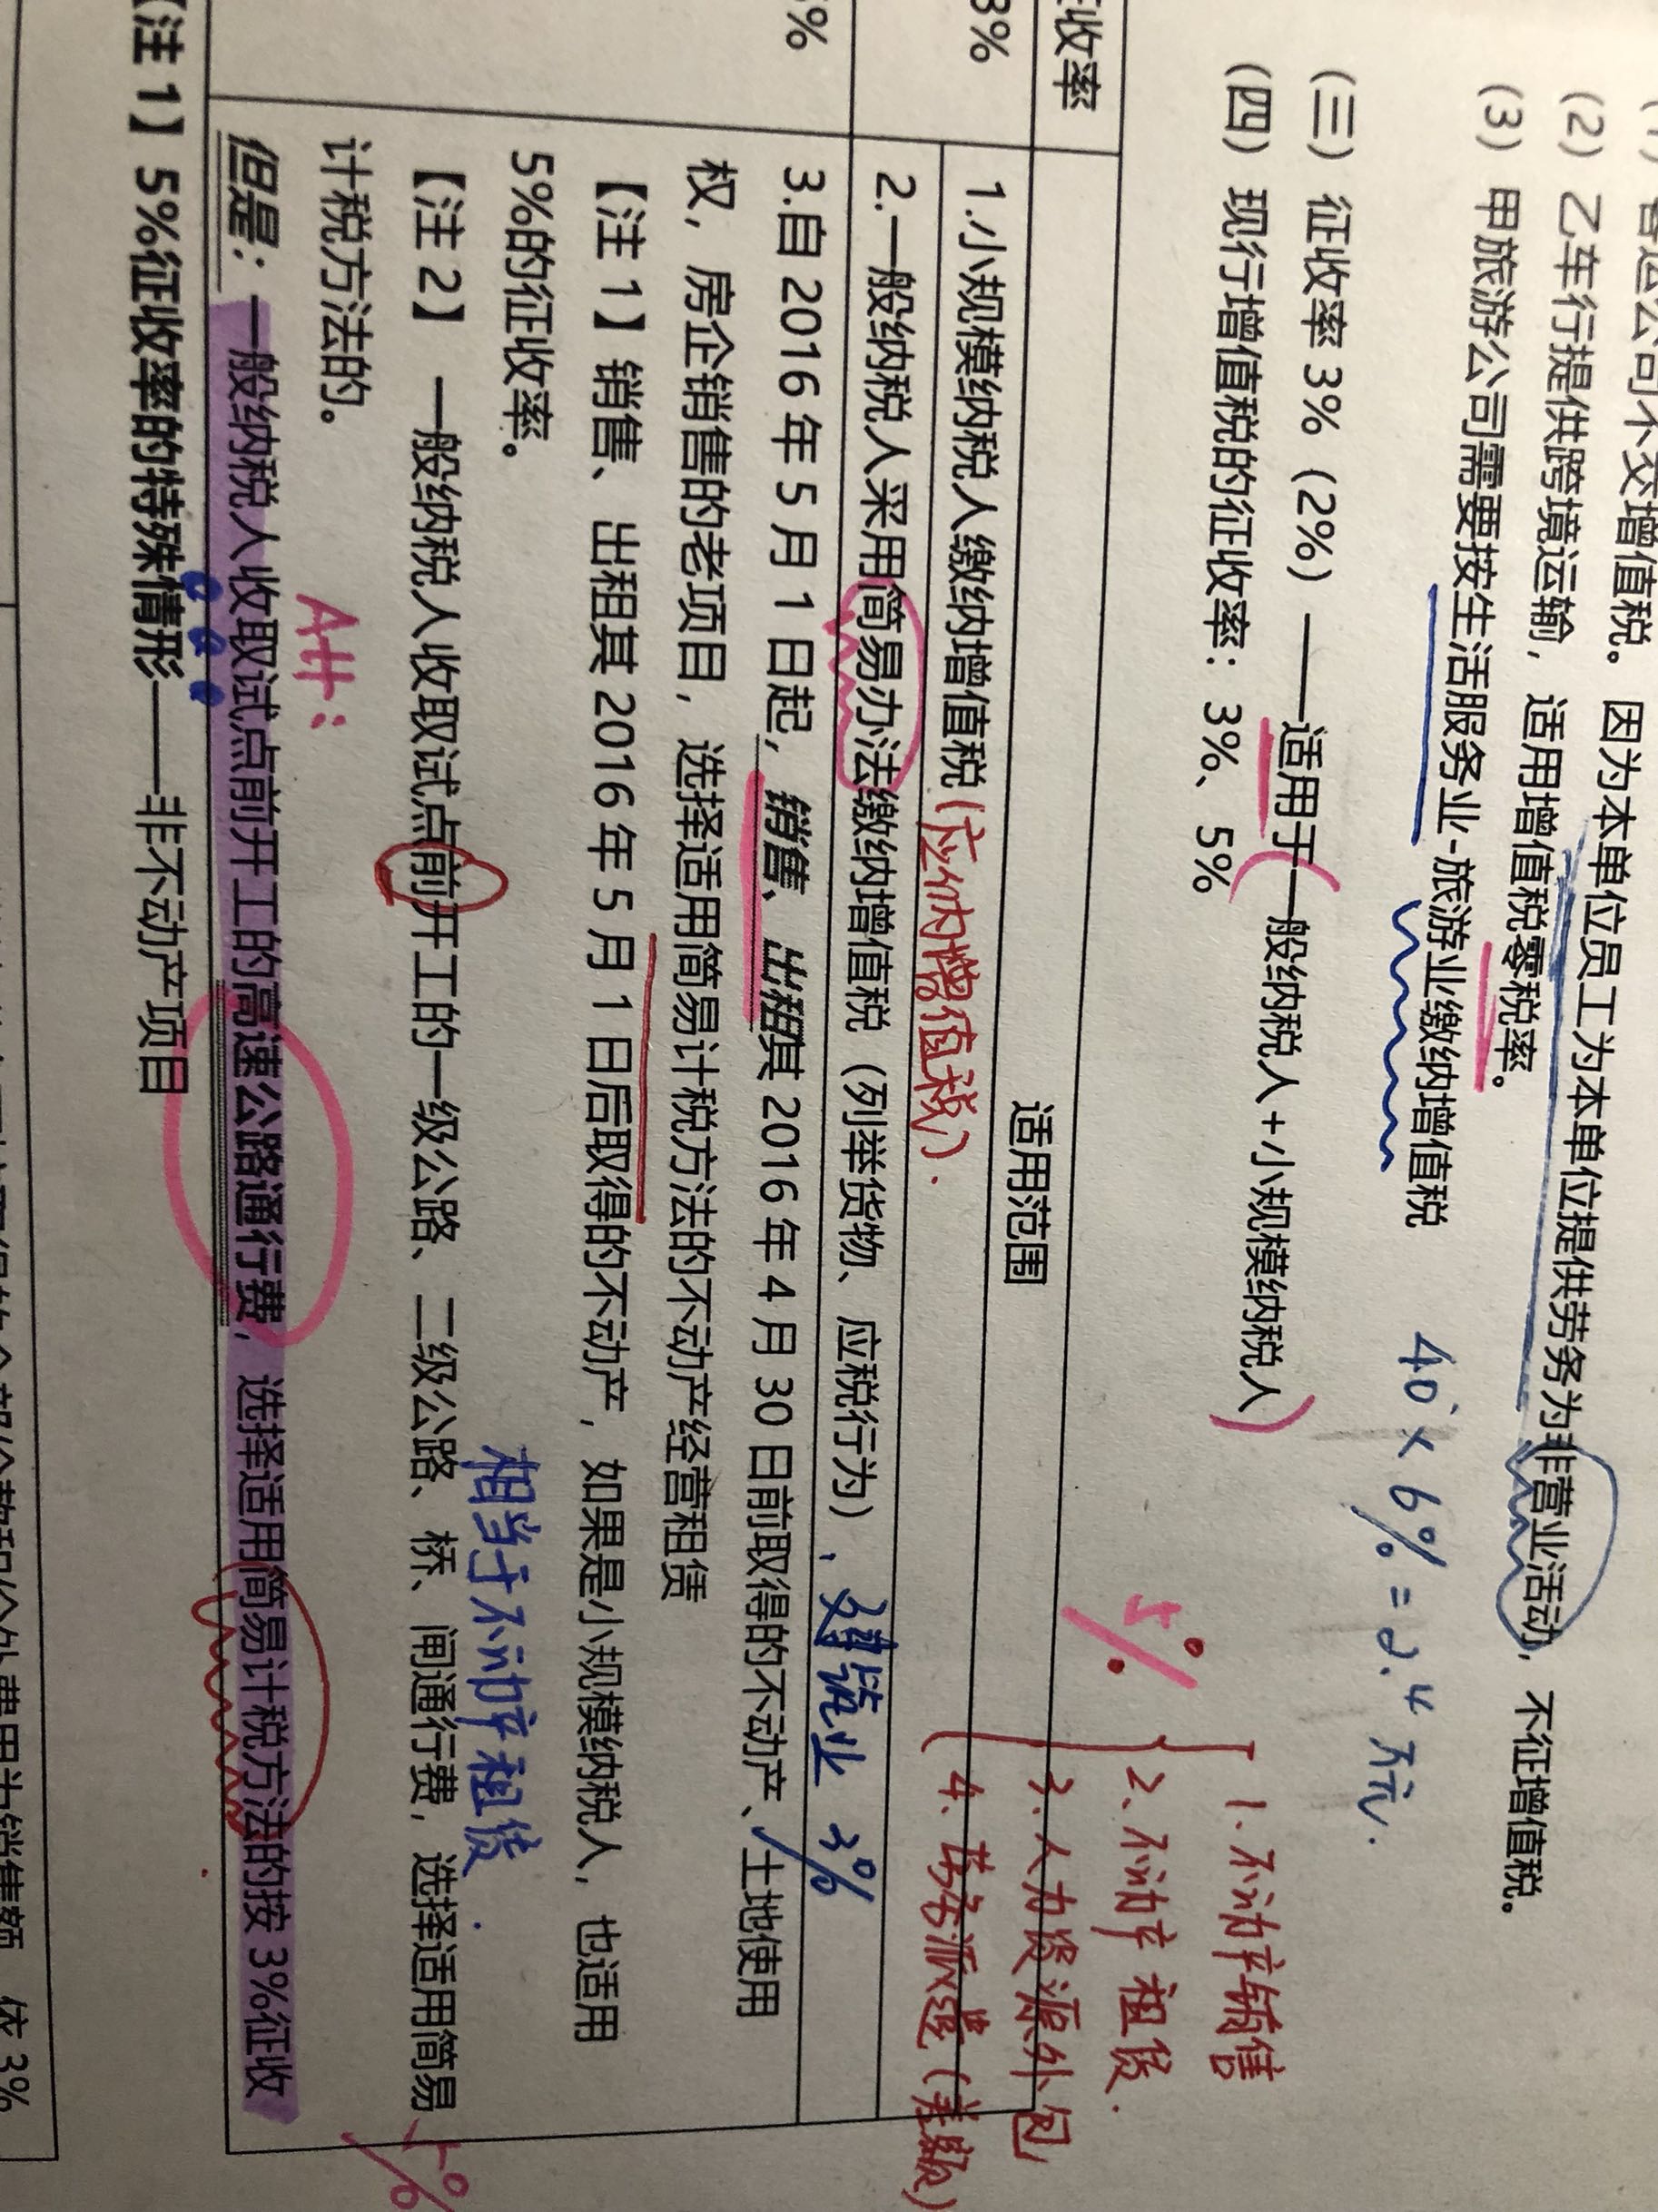 客运公司不交增值税。因为本单位员工为本单位提供劳务为非营业活动，不征增值税。
(2) 乙车行提供跨境运输，适用增值税零税率。
(3) 甲旅游公司需要按生活服务业-旅游业缴纳增值税
40 × 6% = 2.4 万元.
(三) 征收率 3%（2%）——适用于一般纳税人+小规模纳税人
(四) 现行增值税的征收率：3%、5%
5%
1. 不动产销售
2. 不动产租赁.
3. 人力资源外包
4. 劳务派遣（差额）
收率
适用范围
3%
1.小规模纳税人缴纳增值税
(应纳增值税).
2.一般纳税人采用简易办法缴纳增值税（列举货物、应税行为）
、建筑业 3%
%
3.自 2016 年 5 月 1 日起，销售、出租其 2016 年 4 月 30 日前取得的不动产、土地使用
权，房企销售的老项目，选择适用简易计税方法的不动产经营租赁
【注 1】销售、出租其 2016 年 5 月 1 日后取得的不动产，如果是小规模纳税人，也适用
5%的征收率。
相当于不动产租赁.
【注 2】 一般纳税人收取试点前开工的一级公路、二级公路、桥、闸通行费，选择适用简易
计税方法的。
5%
Att:
但是：一般纳税人收取试点前开工的高速公路通行费，选择适用简易计税方法的按 3%征收
【注 1】5%征收率的特殊情形——非不动产项目
依 3%